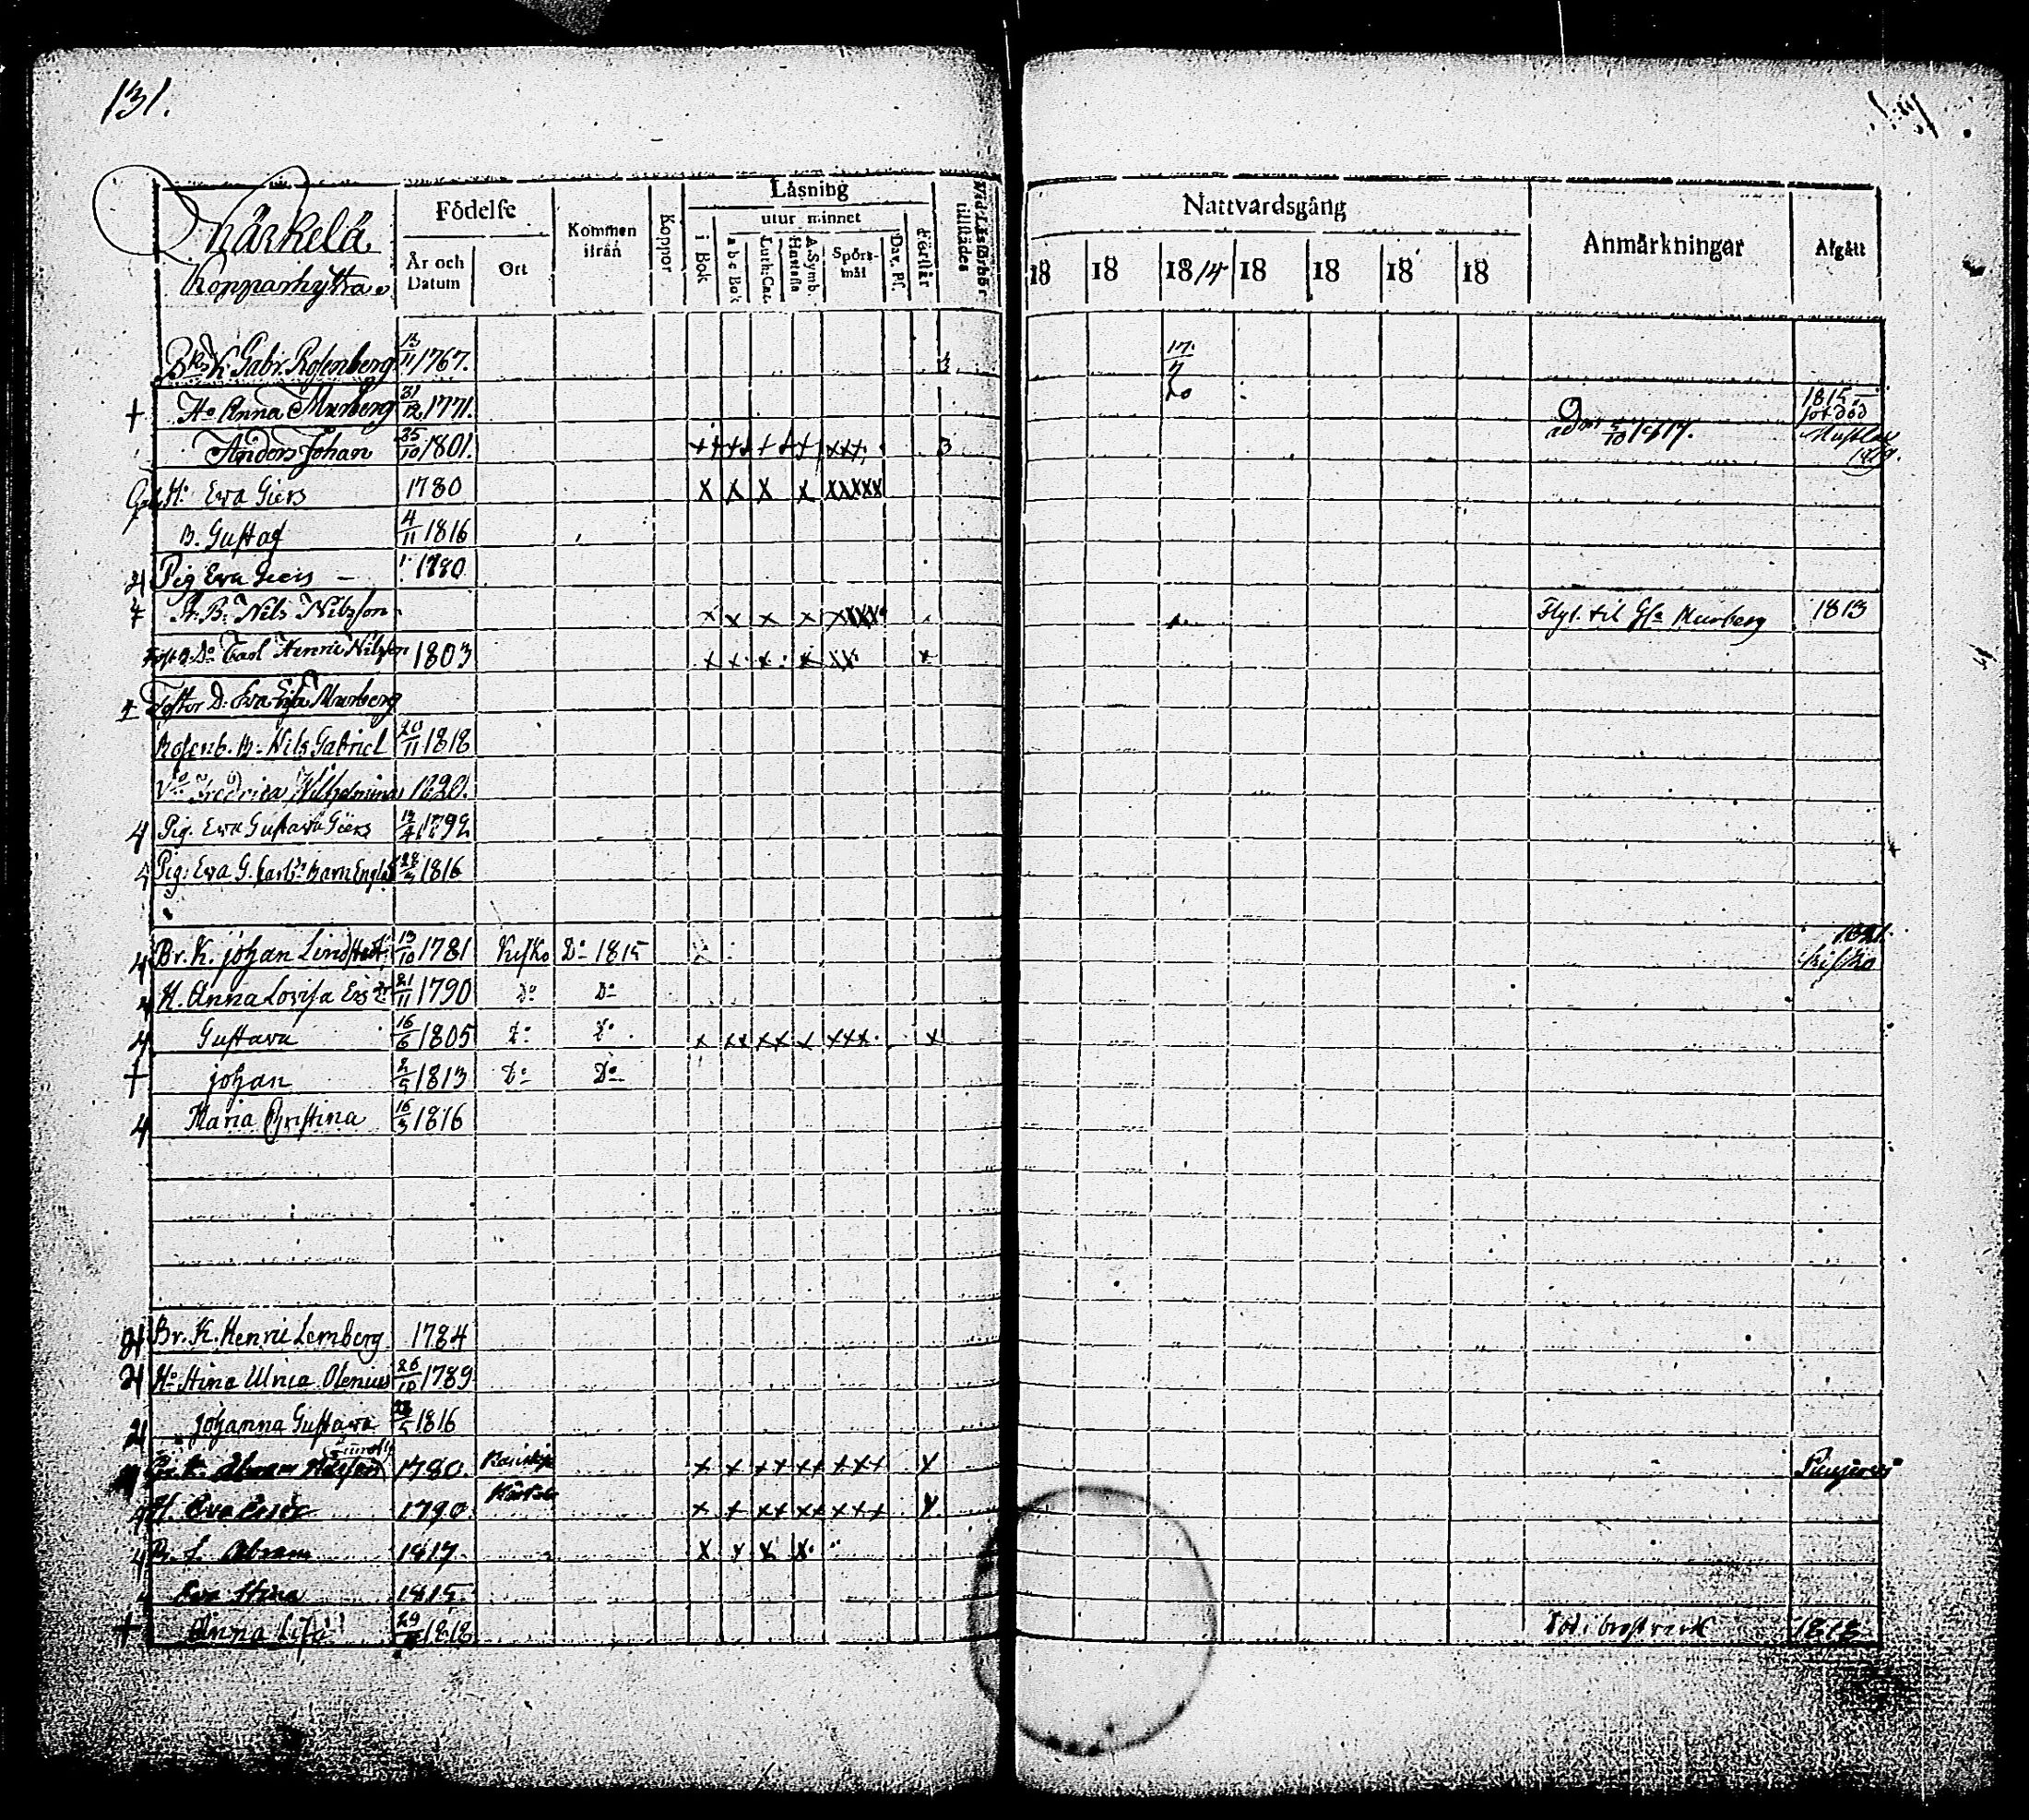 131.
Kärkelä
Kopparhytta.
Födelse
År och Datum
Ort
Kommen ifrån
Koppor
Läsning
i Bok
utur minnet
a b c Bok
Luth. Cat.
Hustafla
A. Symb.
Spörs-mål
Dav. Ps.
Förstår
Wid Läsförhör tillstädes
Nattvardsgång
18 18 18/14 18 18 18 18
Anmärkningar
Afgått
Br. K. Gabr. Rosenberg 13/11 1767. 17/7
+ Ho Anna Murberg 31/12 1771. 1815 död
Anders Johan 25/10 1801. ++ + + + + + xxx 3 adm 5/10 1817.
H: Ewa Giers 1780 x x x x xxxxx
B. Gustaf 4/11 1816
Pig Ewa Giers - 1780
B: Nils Nilsson x x x x xxxx Flyt. til Murberg 1813
Do Carl Henric Nilsson 1803 x x x x xx x
Foster D. Eva Lisa Murberg
Rosenb. B. Nils Gabriel 20/11 1818
Fredrica Wilhelmina 1820.
4 Pig. Ewa Gustava Giers 1792
Pig: Ewa G. barn 1816
4 Br. K. johan Lindstedt 13/10 1781 Kisko Do 1815 1821. Kisko
4 H. Anna Lovisa 21/11 1790 Do Do
4 Gustava 16/6 1805 Do Do x xx xx x xxx x
+ johan 2/5 1813 Do Do
4 Maria Christina 16/3 1816
Br. K. Henric Lemberg 1784
Ho Stina Ulrica Olenius 26/10 1789
Johanna Gustava 1816
K. Abram 1780. x x xx xx xxx x
H. Eva 1790 x x xx xx xxx x
Abram 1817 x x x x
Eva Stina 1815
+ Anna Lisa 29 1818 död i bröstverk 1818